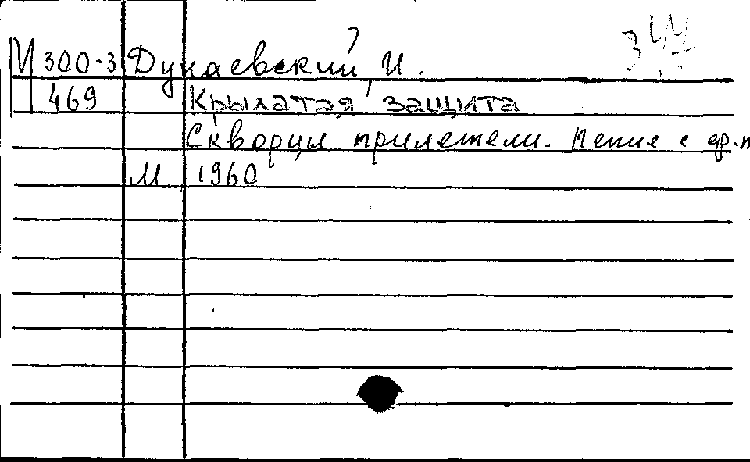 344
М 300-3 Дунаевский, И.
469 Крылатая защита
Скворцы прилетели. Пение с
М 1960